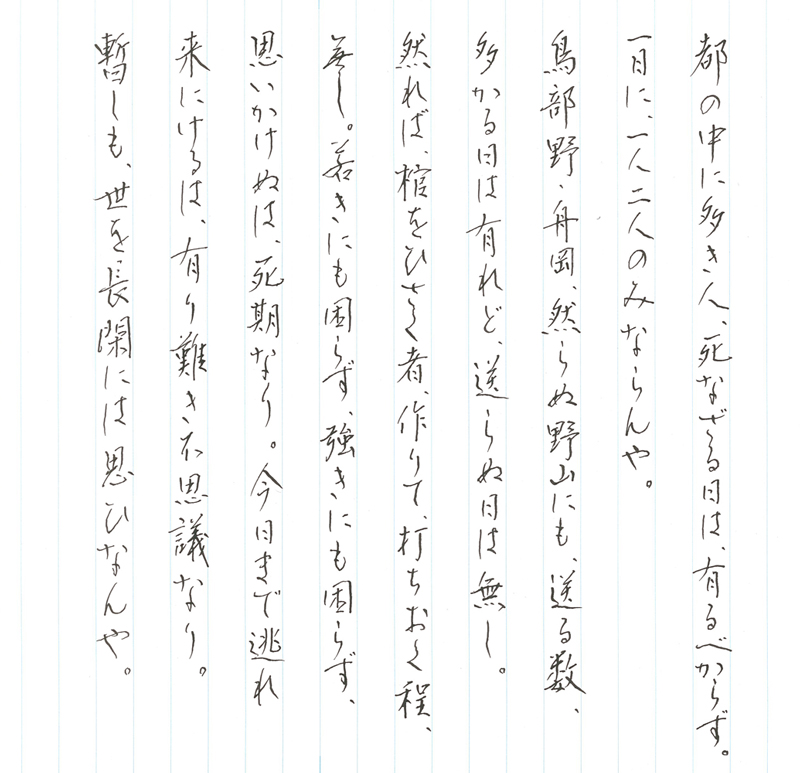 都の中に多き人、死なざる日は、有るべからず。
一日に、一人二人のみならんや。
鳥部野・舟岡、然らぬ野山にも、送る数、
多かる日は有れど、送らぬ日は無し。
然れば、棺をひさく者、作りて、打ちおく程、
無し。若きにも困らず、強きにも困らず、
思いかけぬは、死期なり。今日まで逃れ
来にけるは、有り難き不思議なり。
暫しも、世を長閑には思ひなんや。